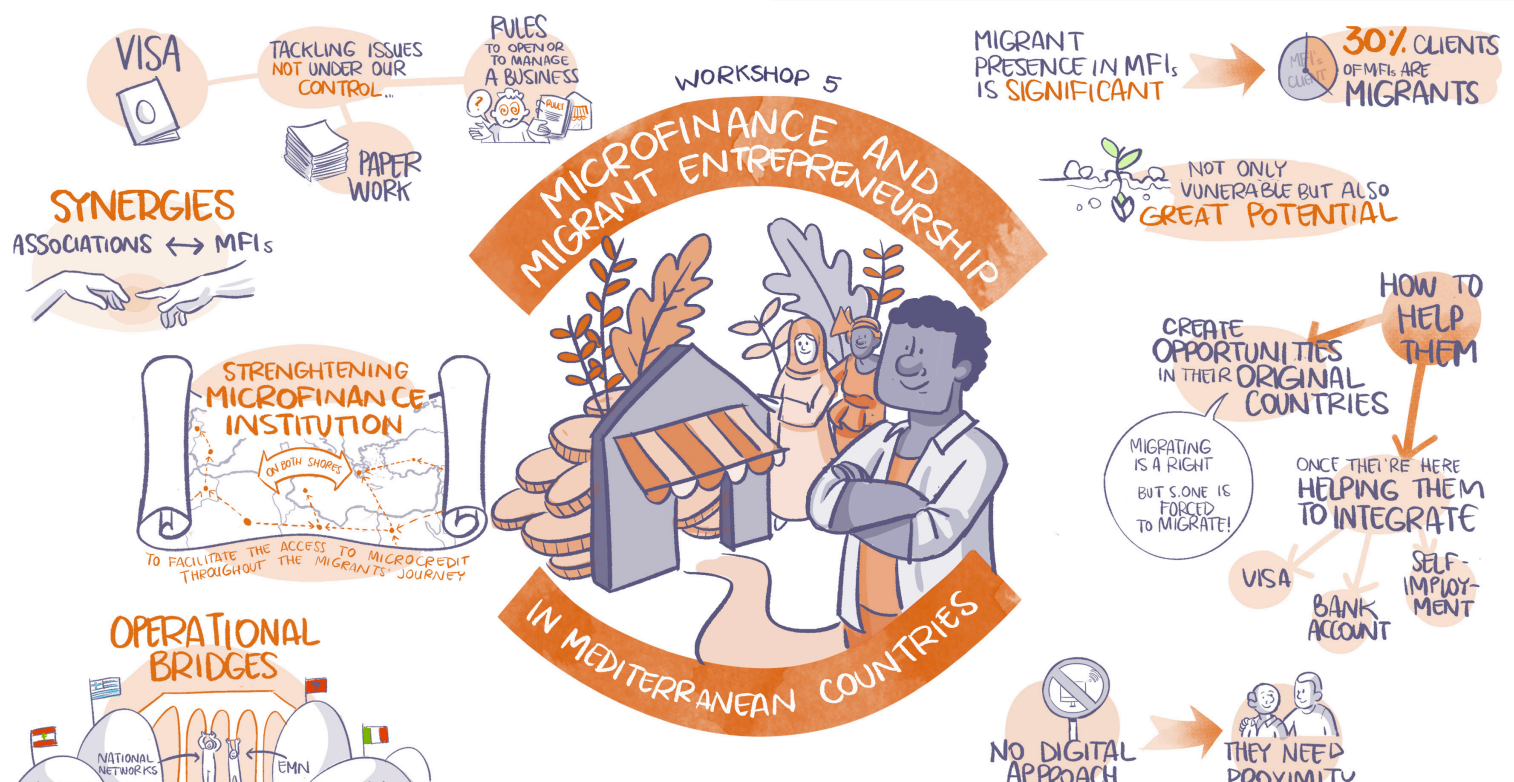 VISA
TACKLING ISSUES
NOT UNDER OUR
CONTROL...
RULES
TO OPEN OR
TO MANAGE
A BUSINESS
?
RULES
PAPER
WORK
SYNERGIES
ASSOCIATIONS ↔ MFIs
STRENGHTENING
MICROFINANCE
INSTITUTION
ON BOTH SHORES
TO FACILITATE THE ACCESS TO MICROCREDIT
THROUGHOUT THE MIGRANTS' JOURNEY
OPERATIONAL
BRIDGES
NATIONAL
NETWORKS
EMN
WORKSHOP 5
MICROFINANCE AND
MIGRANT ENTREPRENEURSHIP
IN MEDITERRANEAN COUNTRIES
MIGRANT
PRESENCE IN MFIs
IS SIGNIFICANT
MFI's
CLIENT
30% CLIENTS
OF MFIs ARE
MIGRANTS
NOT ONLY
VUNERABLE BUT ALSO
GREAT POTENTIAL
HOW TO
HELP
THEM
CREATE
OPPORTUNITIES
IN THEIR ORIGINAL
COUNTRIES
MIGRATING
IS A RIGHT
BUT S.ONE IS
FORCED
TO MIGRATE!
ONCE THEI'RE HERE
HELPING THEM
TO INTEGRATE
VISA
BANK
ACCOUNT
SELF-
IMPLOY-
MENT
NO DIGITAL
APPROACH
THEY NEED
PROXIMITY